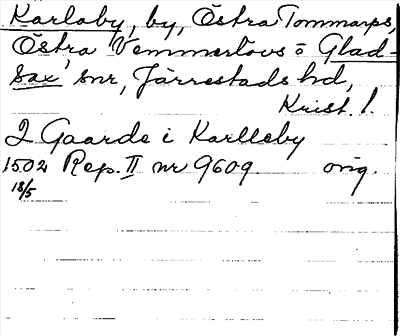 Karlaby, by, Östra Tommarps,
Östra Vemmerlövs o Glad-
sax' snr, Järrestads hd,
Krist. l.
2 Gaarde i Karlleby
1502 Rep. II nr 9609. orig.
18/5